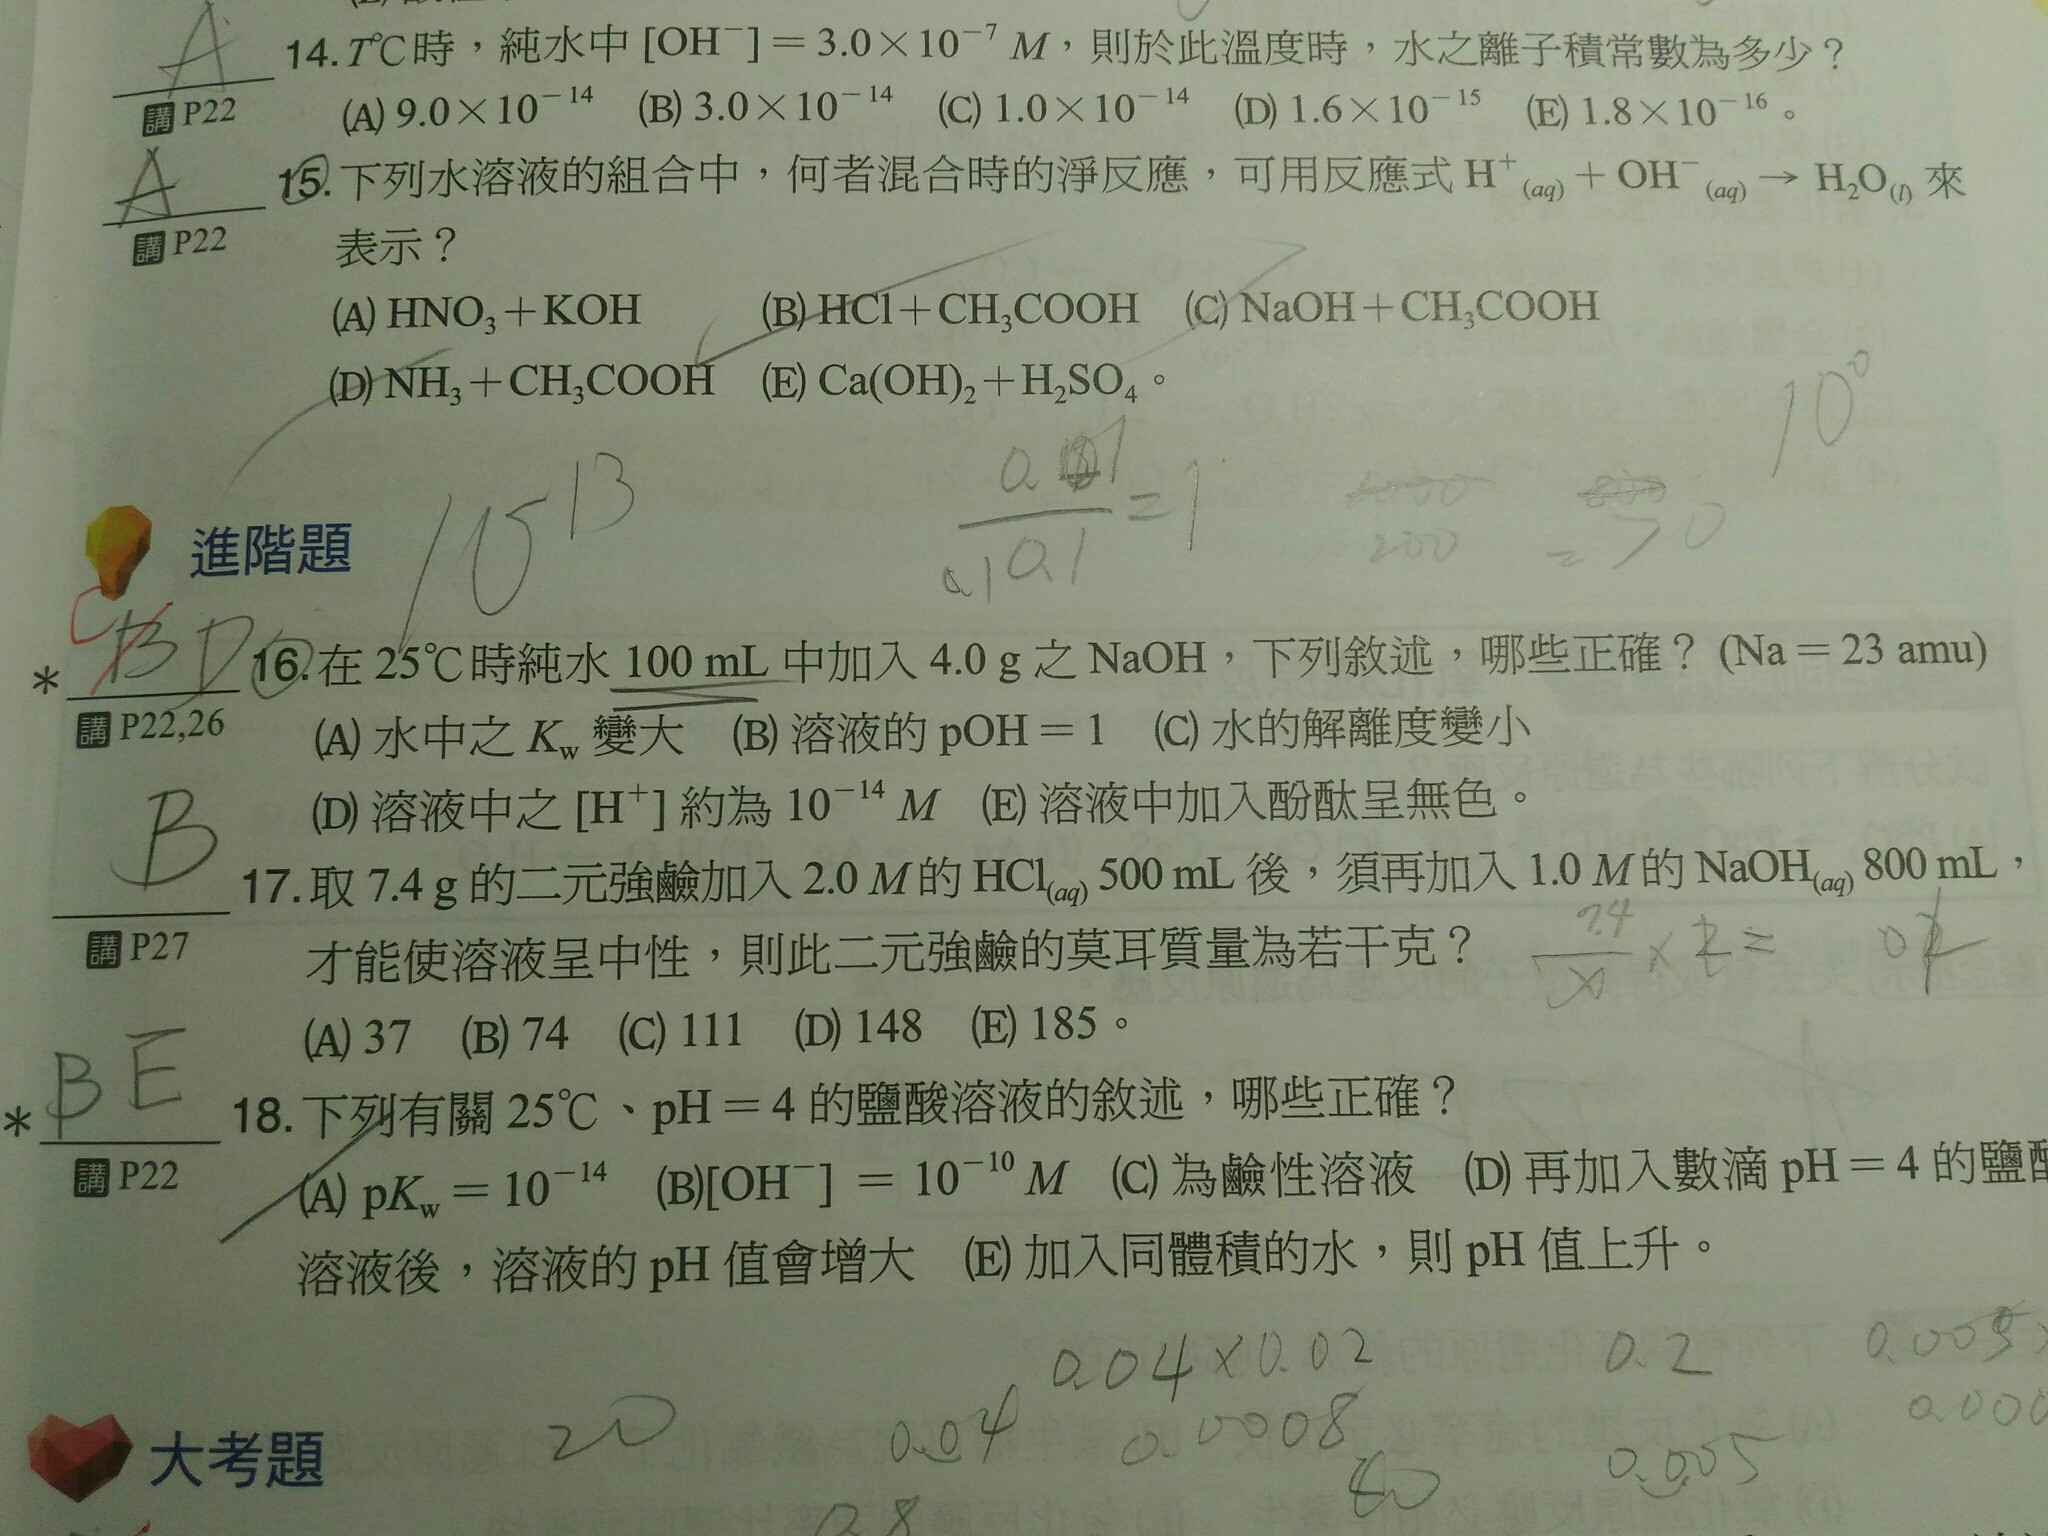 A
14. T℃時，純水中 [OH⁻] = 3.0×10⁻⁷ M，則於此溫度時，水之離子積常數為多少？
講 P22
(A) 9.0×10⁻¹⁴ (B) 3.0×10⁻¹⁴ (C) 1.0×10⁻¹⁴ (D) 1.6×10⁻¹⁵ (E) 1.8×10⁻¹⁶。
A
15. 下列水溶液的組合中，何者混合時的淨反應，可用反應式 H⁺(aq) + OH⁻(aq) → H₂O(l) 來
講 P22
表示？
(A) HNO₃+KOH (B) HCl+CH₃COOH (C) NaOH+CH₃COOH
(D) NH₃+CH₃COOH (E) Ca(OH)₂+H₂SO₄。
10⁰
10 13
0.1 = 1
0.1 0.1
200 = 70
進階題
C B D
* 16. 在 25℃時純水 100 mL 中加入 4.0 g 之 NaOH，下列敘述，哪些正確？ (Na = 23 amu)
講 P22,26
(A) 水中之 Kw 變大 (B) 溶液的 pOH = 1 (C) 水的解離度變小
(D) 溶液中之 [H⁺] 約為 10⁻¹⁴ M (E) 溶液中加入酚酞呈無色。
B
17. 取 7.4 g 的二元強鹼加入 2.0 M 的 HCl(aq) 500 mL 後，須再加入 1.0 M 的 NaOH(aq) 800 mL，
講 P27
才能使溶液呈中性，則此二元強鹼的莫耳質量為若干克？
7.4/x × 2 =
(A) 37 (B) 74 (C) 111 (D) 148 (E) 185。
BE
* 18. 下列有關 25℃、pH = 4 的鹽酸溶液的敘述，哪些正確？
講 P22
(A) pKw = 10⁻¹⁴ (B)[OH⁻] = 10⁻¹⁰ M (C) 為鹼性溶液 (D) 再加入數滴 pH = 4 的鹽
溶液後，溶液的 pH 值會增大 (E) 加入同體積的水，則 pH 值上升。
0.04×0.02 0.2
20 0.04 0.0008 0.005
80
大考題
0.8